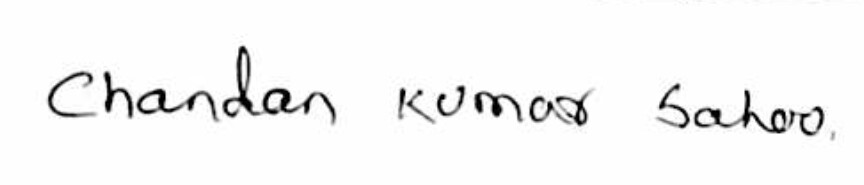 Chandan Kumar Sahoo.